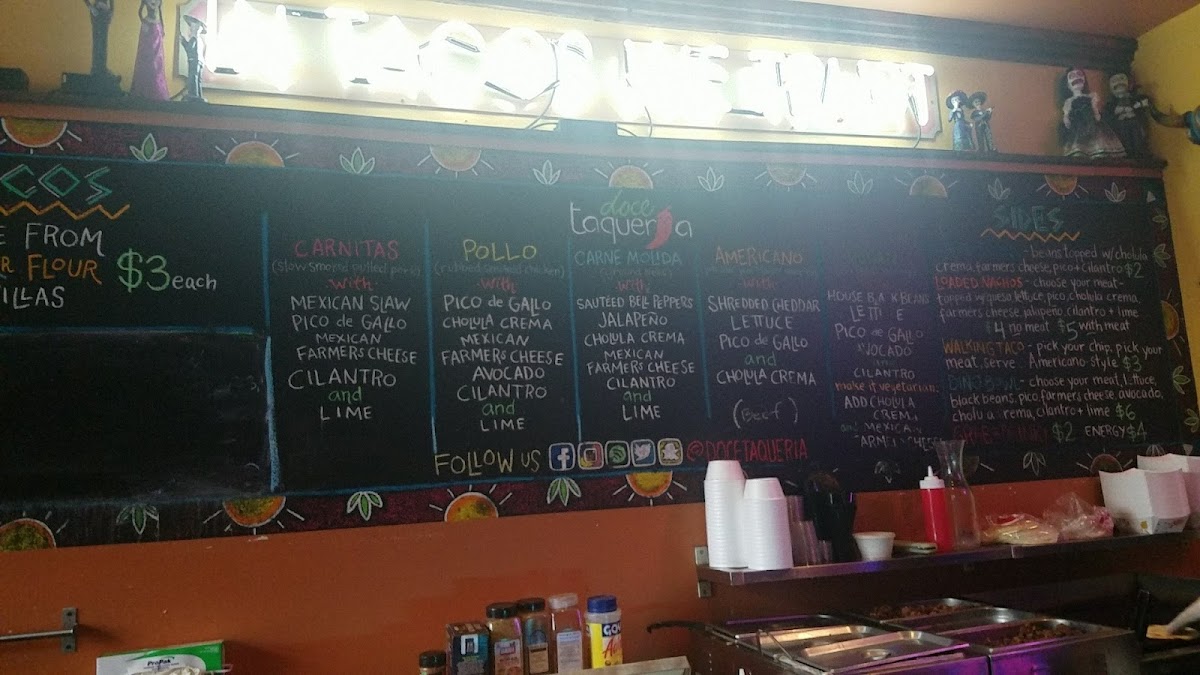 COS
E FROM
R FLOUR
ILLAS
$3 each
CARNITAS
(slow smoked pulled pork)
with:
MEXICAN SLAW
PICO de GALLO
MEXICAN
FARMERS CHEESE
CILANTRO
and
LIME
POLLO
(rubbed smoked chicken)
with:
PICO de GALLO
CHOLULA CREMA
MEXICAN
FARMERS CHEESE
AVOCADO
CILANTRO
and
LIME
doce
taqueria
CARNE MOLIDA
(ground beef)
with:
SAUTEED BELL PEPPERS
JALAPEÑO
CHOLULA CREMA
MEXICAN
FARMERS CHEESE
CILANTRO
and
LIME
AMERICANO
with:
SHREDDED CHEDDAR
LETTUCE
PICO de GALLO
and
CHOLULA CREMA
(Beef)
HOUSE BLACK BEANS
LETT E
PICO de GALLO
AVOCADO
and
CILANTRO
make it vegetarian:
ADD CHOLULA
CREMA
and MEXICAN
FARMERS CHEESE
SIDES
beans topped w/cholula
crema, farmers cheese, pico + cilantro $2
LOADED NACHOS - choose your meat -
topped w/queso, lettuce, pico, cholula crema,
farmers cheese, jalapeño, cilantro + lime
$4 no meat $5 with meat
WALKING TACO - pick your chip, pick your
meat, serve Americano-style $3
DINO BOWL - choose your meat, lettuce,
black beans, pico, farmers cheese, avocado,
cholula crema, cilantro + lime $6
$2 ENERGY $4
FOLLOW US @DOCETAQUERIA
ProPak